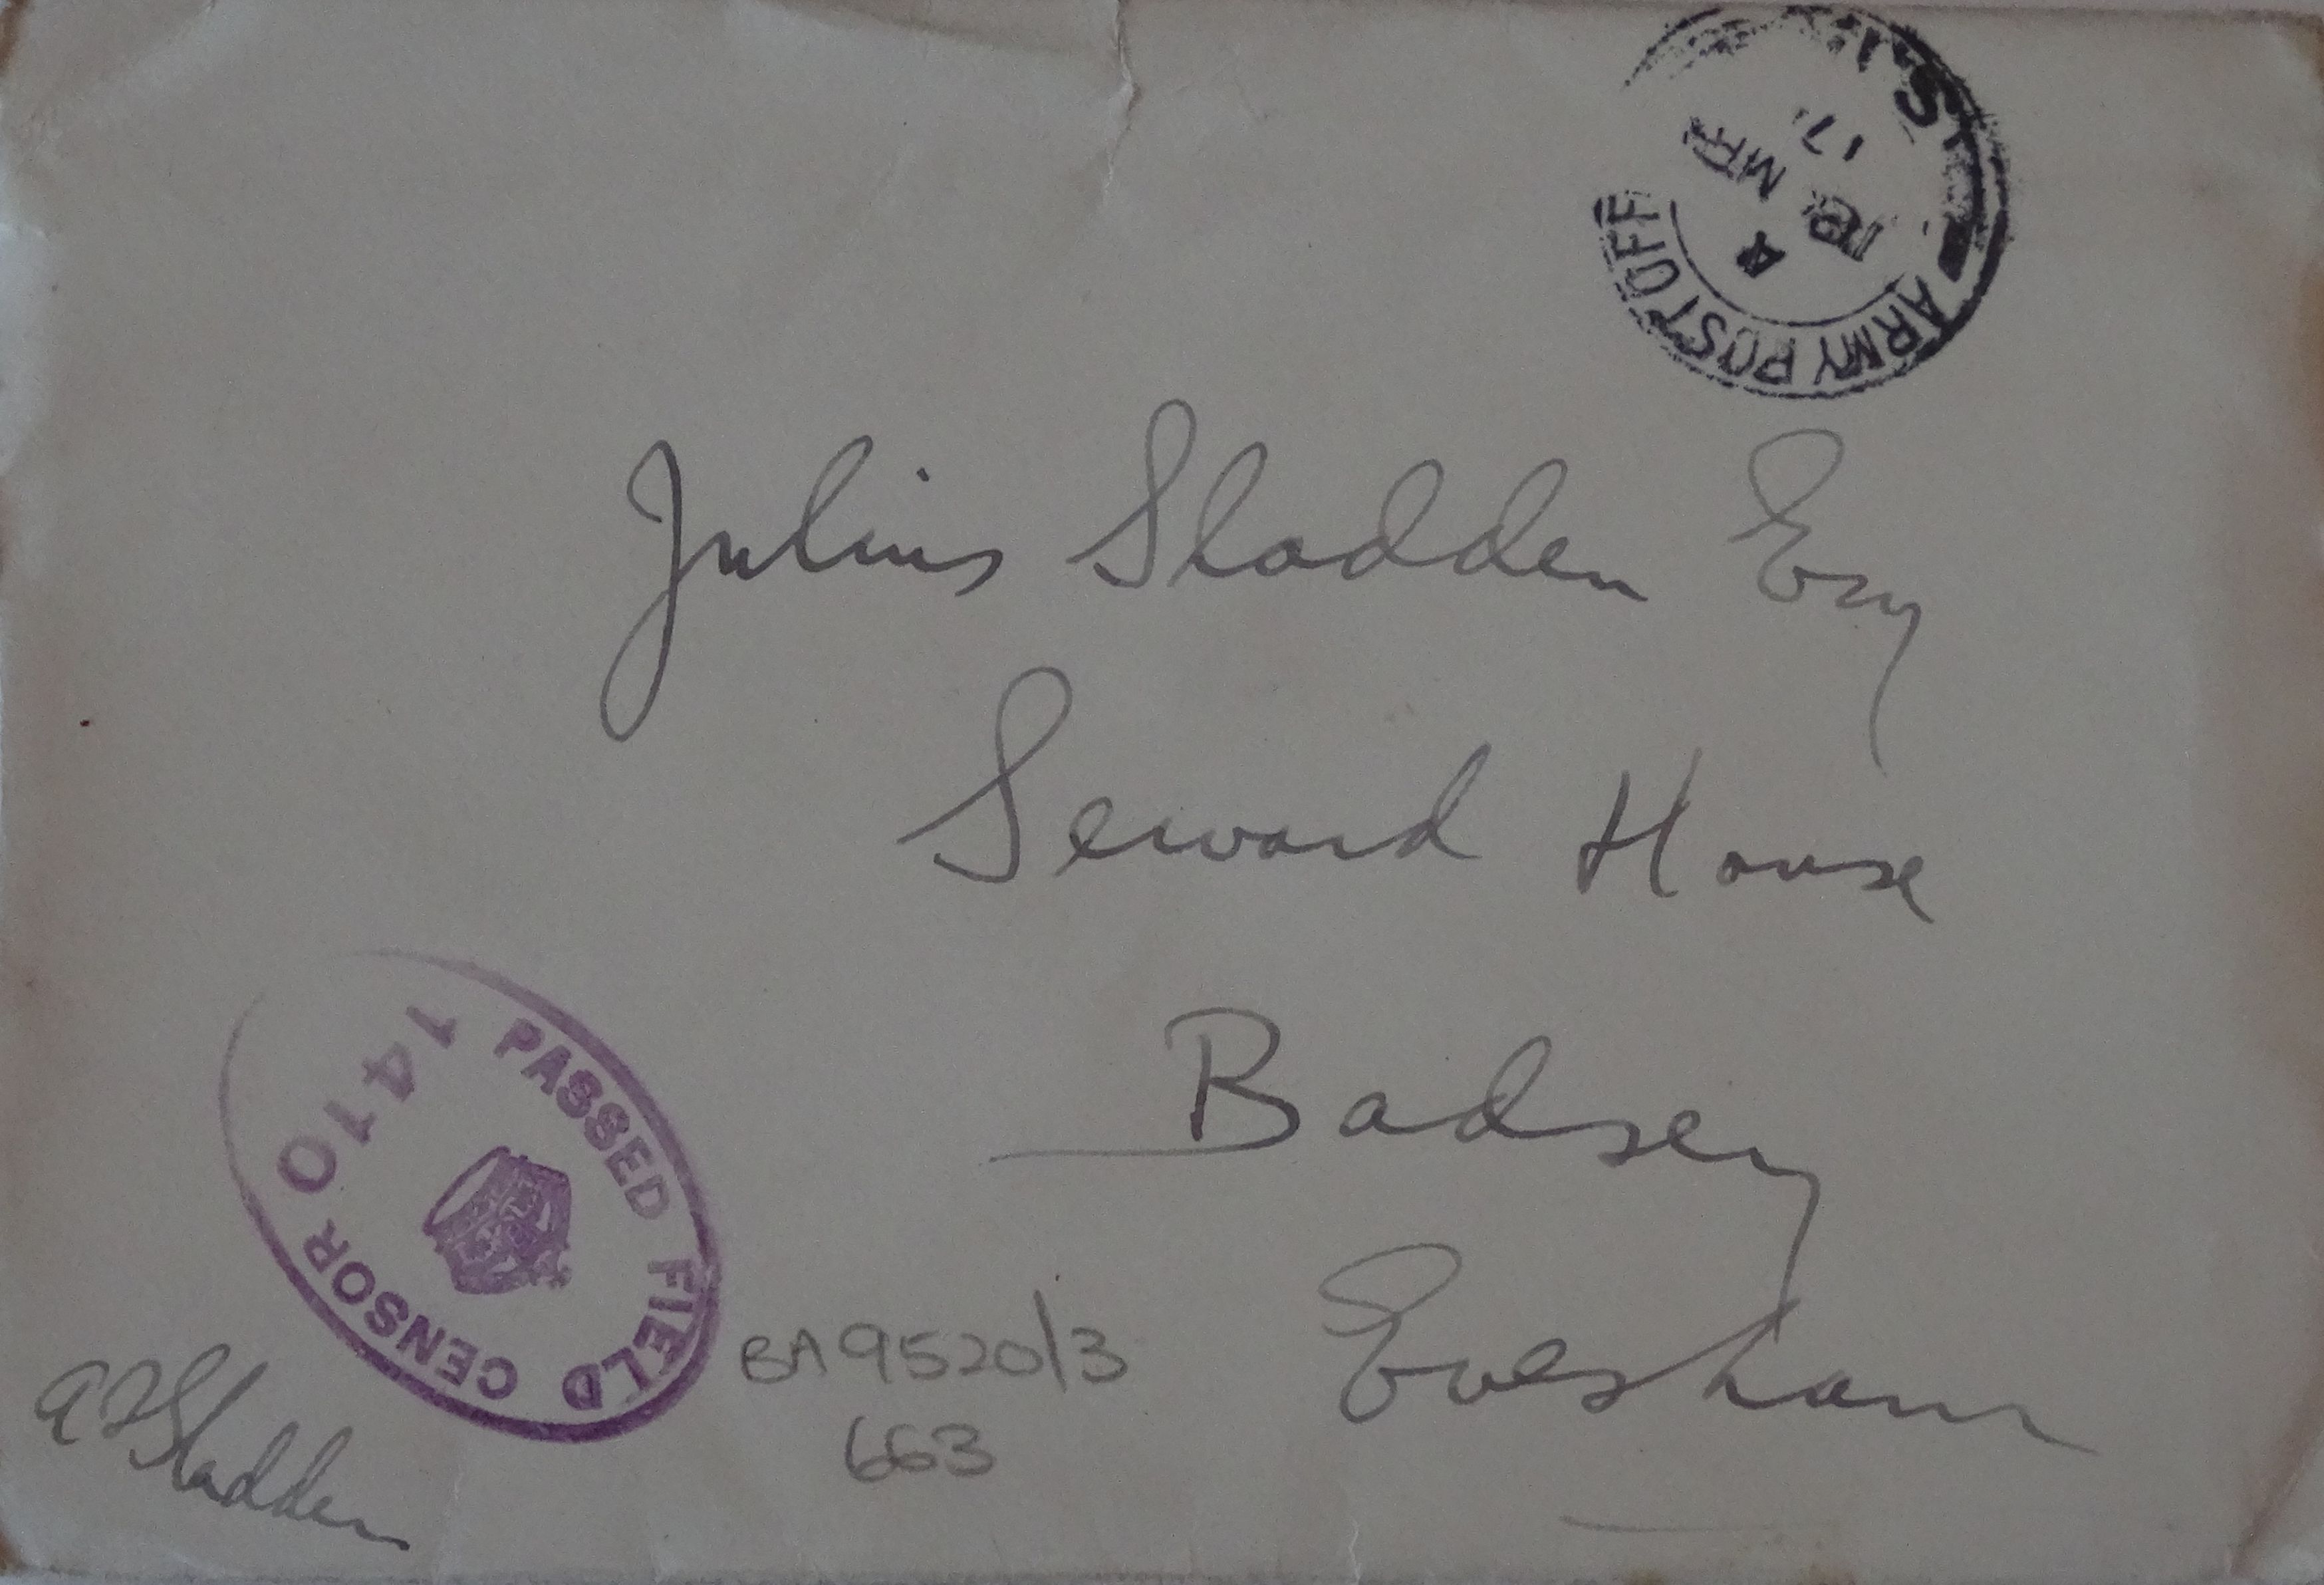 ARMY POST OFF
S.1
A
MR
17
Julius Sladden Esq
Seward House
Badsey
Evesham
PASSED FIELD CENSOR
1410
BA 9520/3
663
A F Sladden